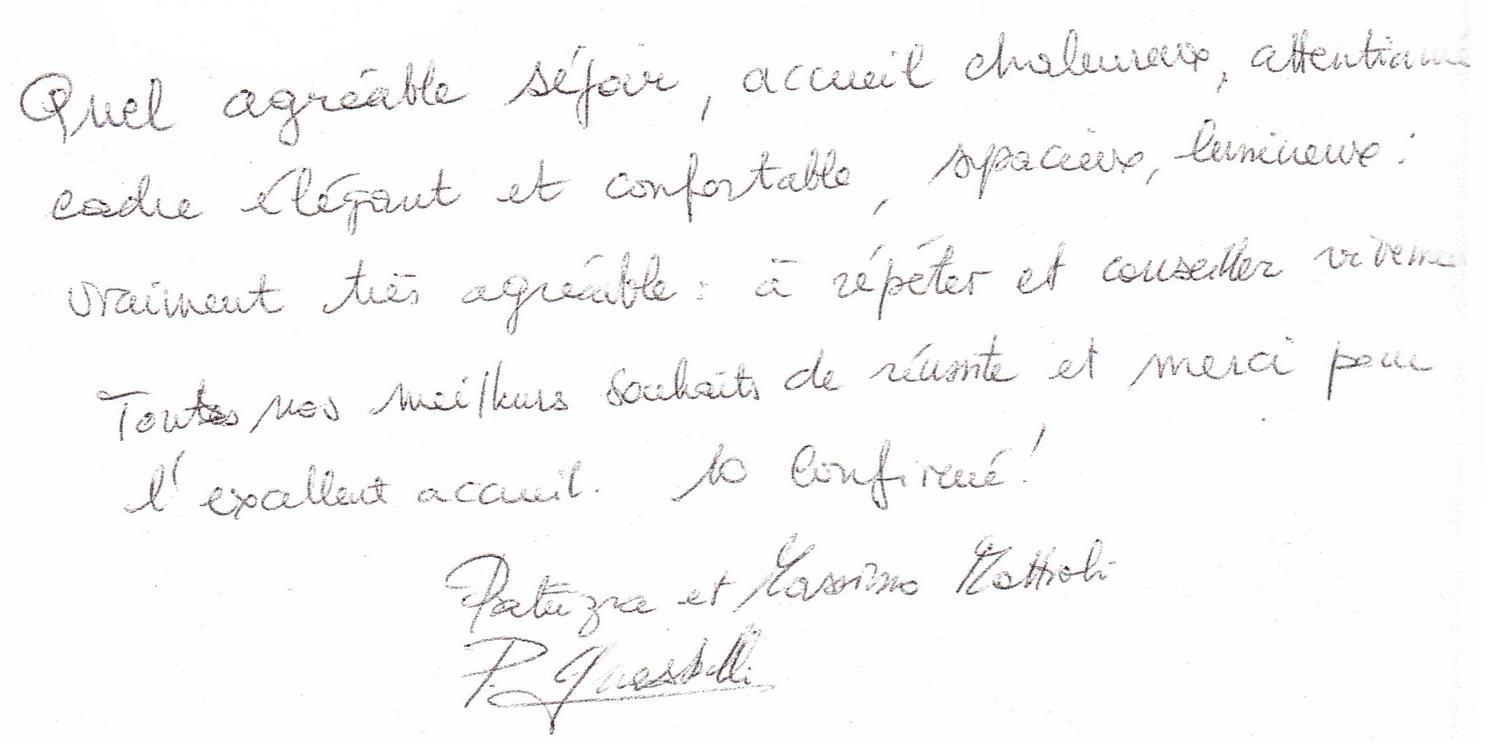 Quel agréable séjour, accueil chaleureux, attentionné
cadre élégant et confortable, spacieux, lumineux :
vraiment très agréable : à répéter et conseiller viveme
Toutes nos meilleurs souhaits de réussite et merci pour
l'excallent accueil. 10 Confirmé !
Patrizia et Massimo Mattioli
P.